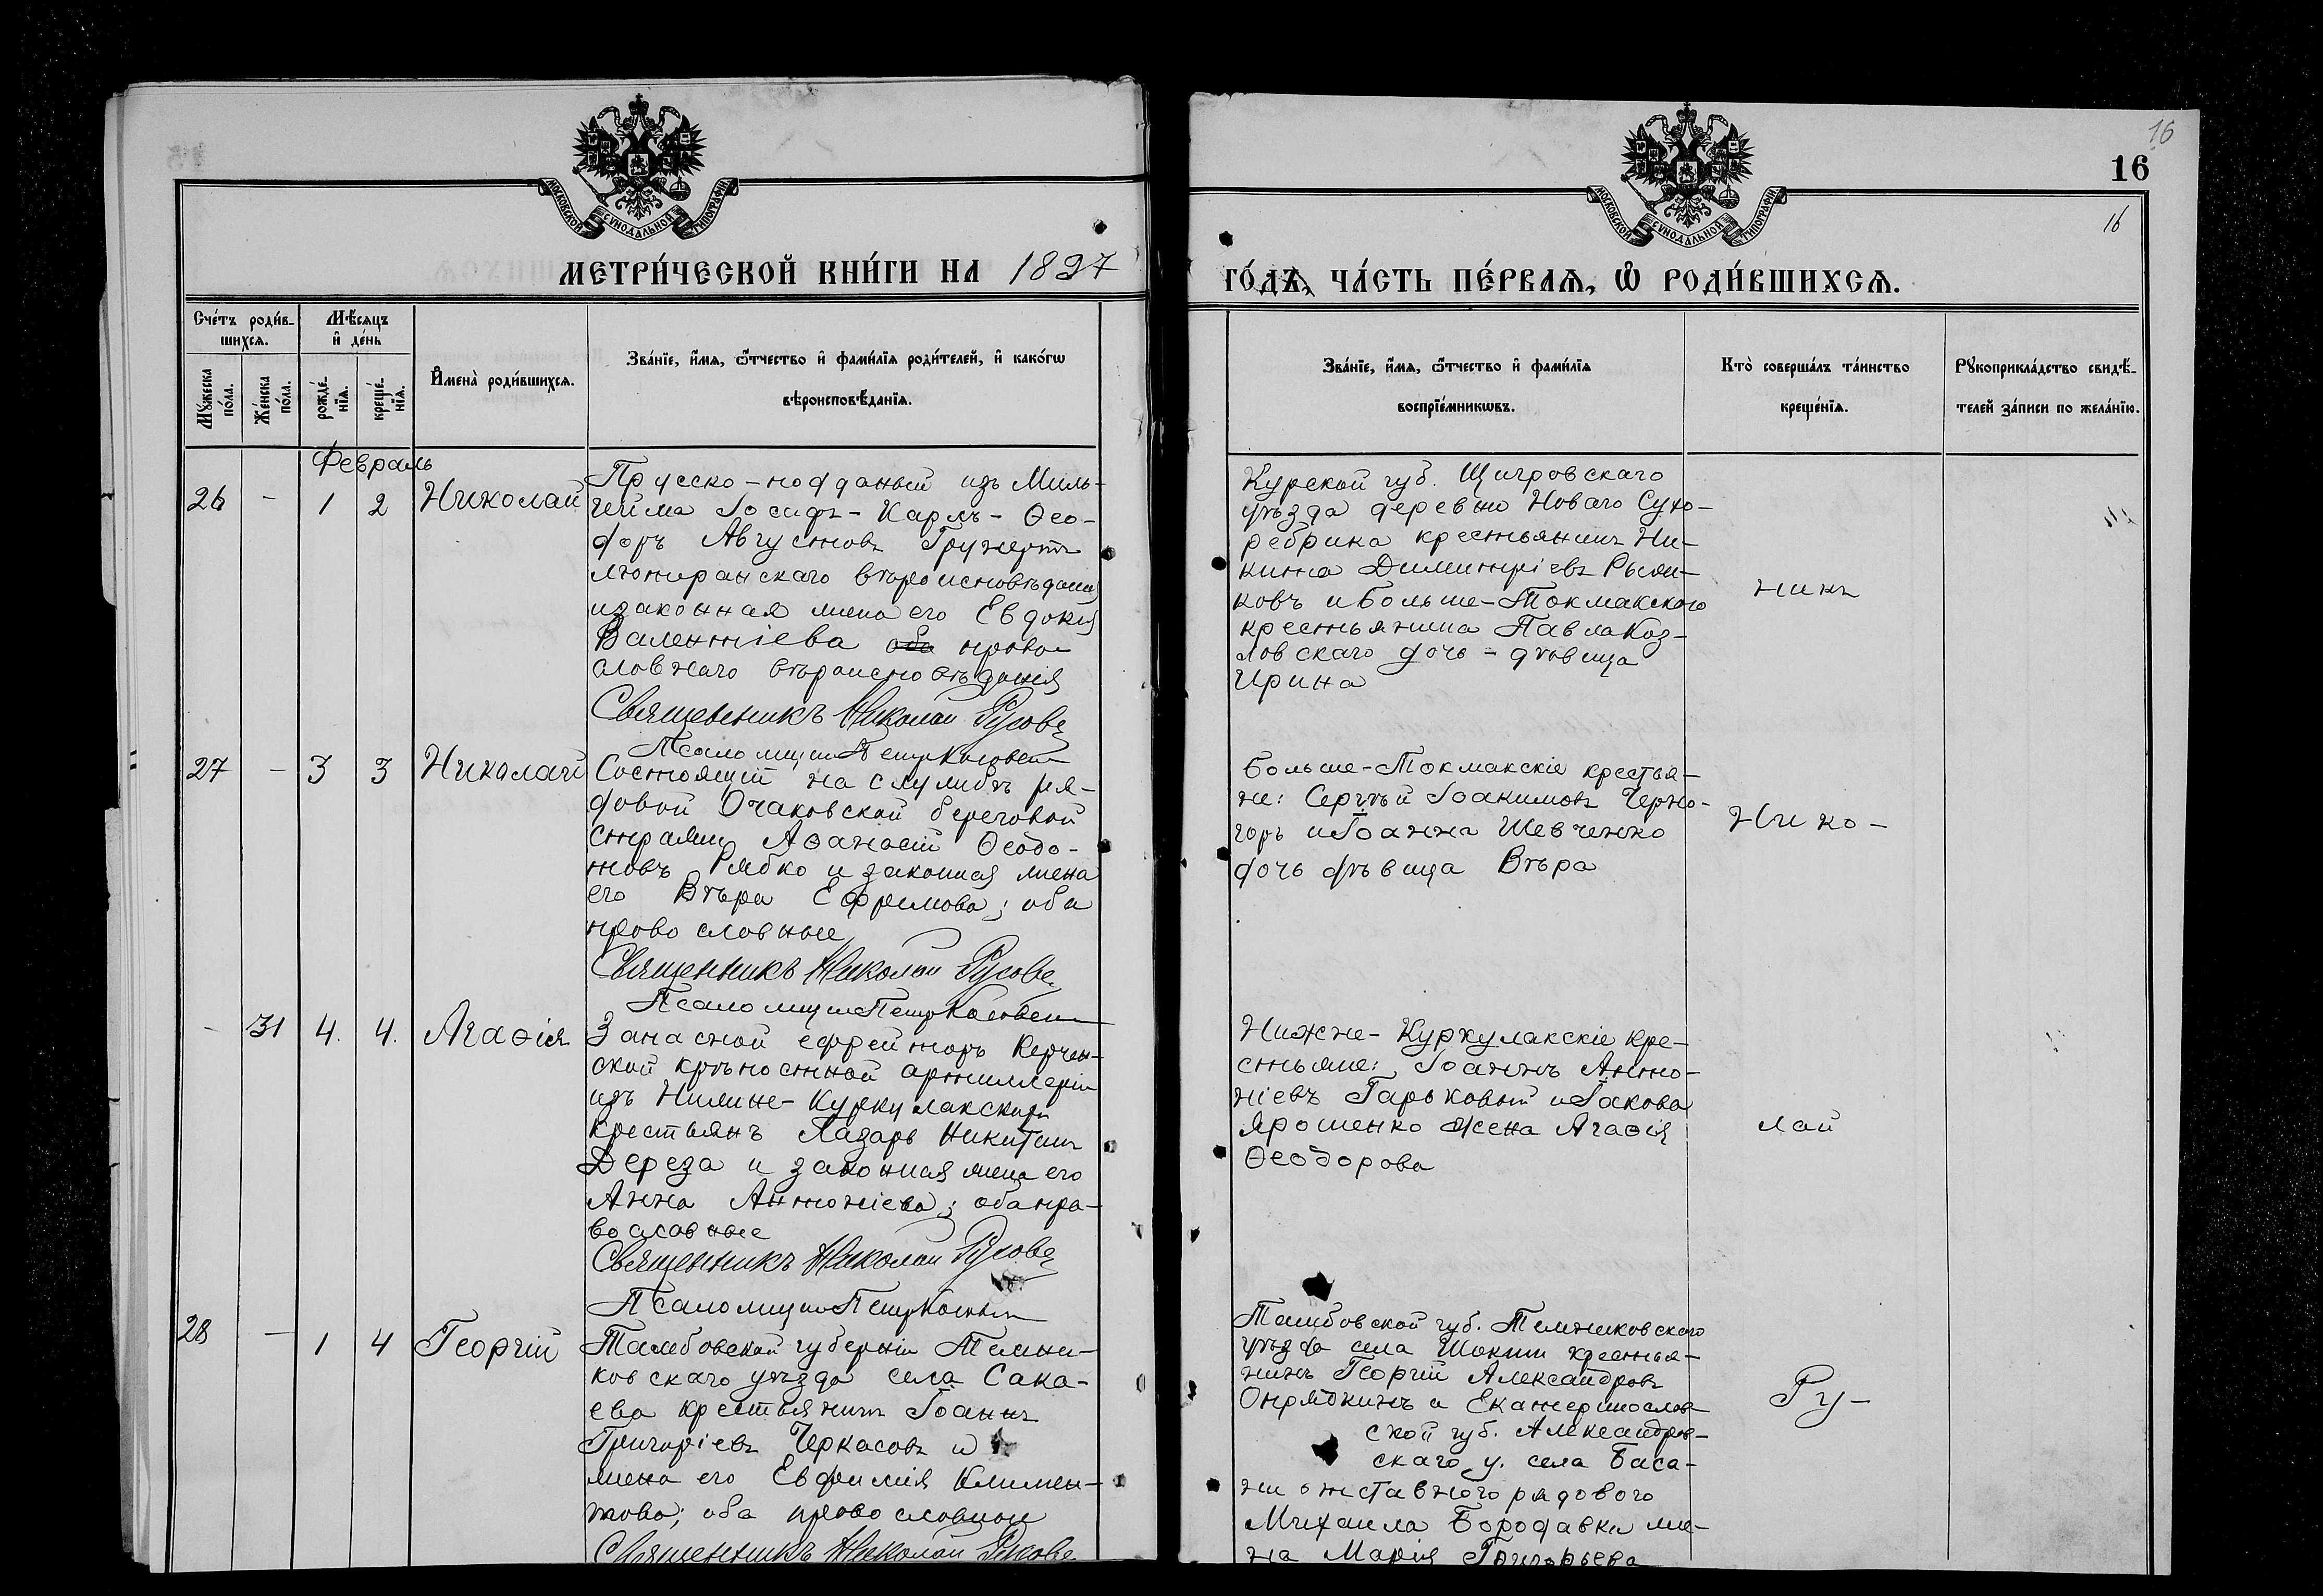 16
16
МОСКОВСКОЙ СѴНОДАЛЬНОЙ ТИПОГРАФІИ
МОСКОВСКОЙ СѴНОДАЛЬНОЙ ТИПОГРАФІИ
16
МЕТРИ́ЧЕСКОЙ КНИ́ГИ НА 1897
ГО́ДЪ, ЧА́СТЬ ПЕ́РВАѦ, Ѡ҆ РОДИ́ВШИХСѦ.
Сче́тъ роди́в-
шихсѧ.
Мꙋ́жеска по́ла.
Же́нска по́ла.
Мѣ́сѧцъ
и҆ де́нь
рожде́-
нїѧ.
креще́-
нїѧ.
И҆мена̀ роди́вшихсѧ.
Зва́нїе, и҆́мѧ, ѻ҆́тчество и҆ фами́лїѧ роди́телей, и҆ како́гѡ
вѣроисповѣ́данїѧ.
Зва́нїе, и҆́мѧ, ѻ҆́тчество и҆ фами́лїѧ
воспрїе́мникѡвъ.
Кто̀ соверша́лъ та́инство
креще́нїѧ.
Рꙋкоприкла́дство свидѣ́-
телей за́писи по жела́нїю.
Февраль
26 - 1 2 Николай
Прусско-подданый изъ Миль-
гейма Іосифъ-Карлъ-Ѳео-
доръ Августовъ Грунертъ
лютиранскаго вѣроисповѣданія
и законная жена его Евдокія
Валентіева оба право-
славнаго вѣроисповѣданія
Священникъ Николай Русовъ
Псаломщикъ Петръ
Курской губ. Щигровскаго
уѣзда деревни Новаго Сухо-
ребрика крестьянинъ Ни-
кита Димитріевъ Рыжи-
ковъ и Больше-Токмакскаго
крестьянина Павла Коз-
ловскаго дочь - дѣвица
Ирина
никъ
27 - 3 3 Николай
Состоящій на службѣ ря-
довой Очаковской береговой
стражи Аѳанасій Ѳеодо-
товъ Рябко и законная жена
его Вѣра Ефремова; оба
православные
Священникъ Николай Русовъ
Псаломщикъ Петръ
Больше-Токмакскіе крестья-
не: Сергѣй Іоакимовъ Черно-
горъ и Іоанна Шевченко
дочь дѣвица Вѣра
Нико-
- 31 4. 4. Агаѳія
Запасной ефрейторъ Керчен-
ской крѣпостной артиллеріи
изъ Нижне-Куркулакскихъ
крестьянъ Лазарь Никитинъ
Дереза и законная жена его
Анна Антоніева; оба пра-
вославные
Священникъ Николай Русовъ
Псаломщикъ Петръ
Нижне-Куркулакскіе кре-
стьяне: Іоаннъ Анто-
ніевъ Гарьковый и Іакова
Ярошенко жена Агаѳія
Ѳеодорова
лай
28 - 1 4 Георгій
Тамбовской губерніи Темни-
ковскаго уѣзда села Сака-
ева крестьянинъ Іоаннъ
Григоріевъ Черкасовъ и
жена его Евфимія Климен-
това; оба православные
Священникъ Николай Русовъ
Тамбовской губ. Темниковскаго
уѣзда села Шокши крестья-
нинъ Георгій Александровъ
Опрядкинъ и Екатеринослав-
ской губ. Александров-
скаго у. села Баса-
ни отставного рядового
Михаила Бородавки же-
на Марія Григорьева
Ру-